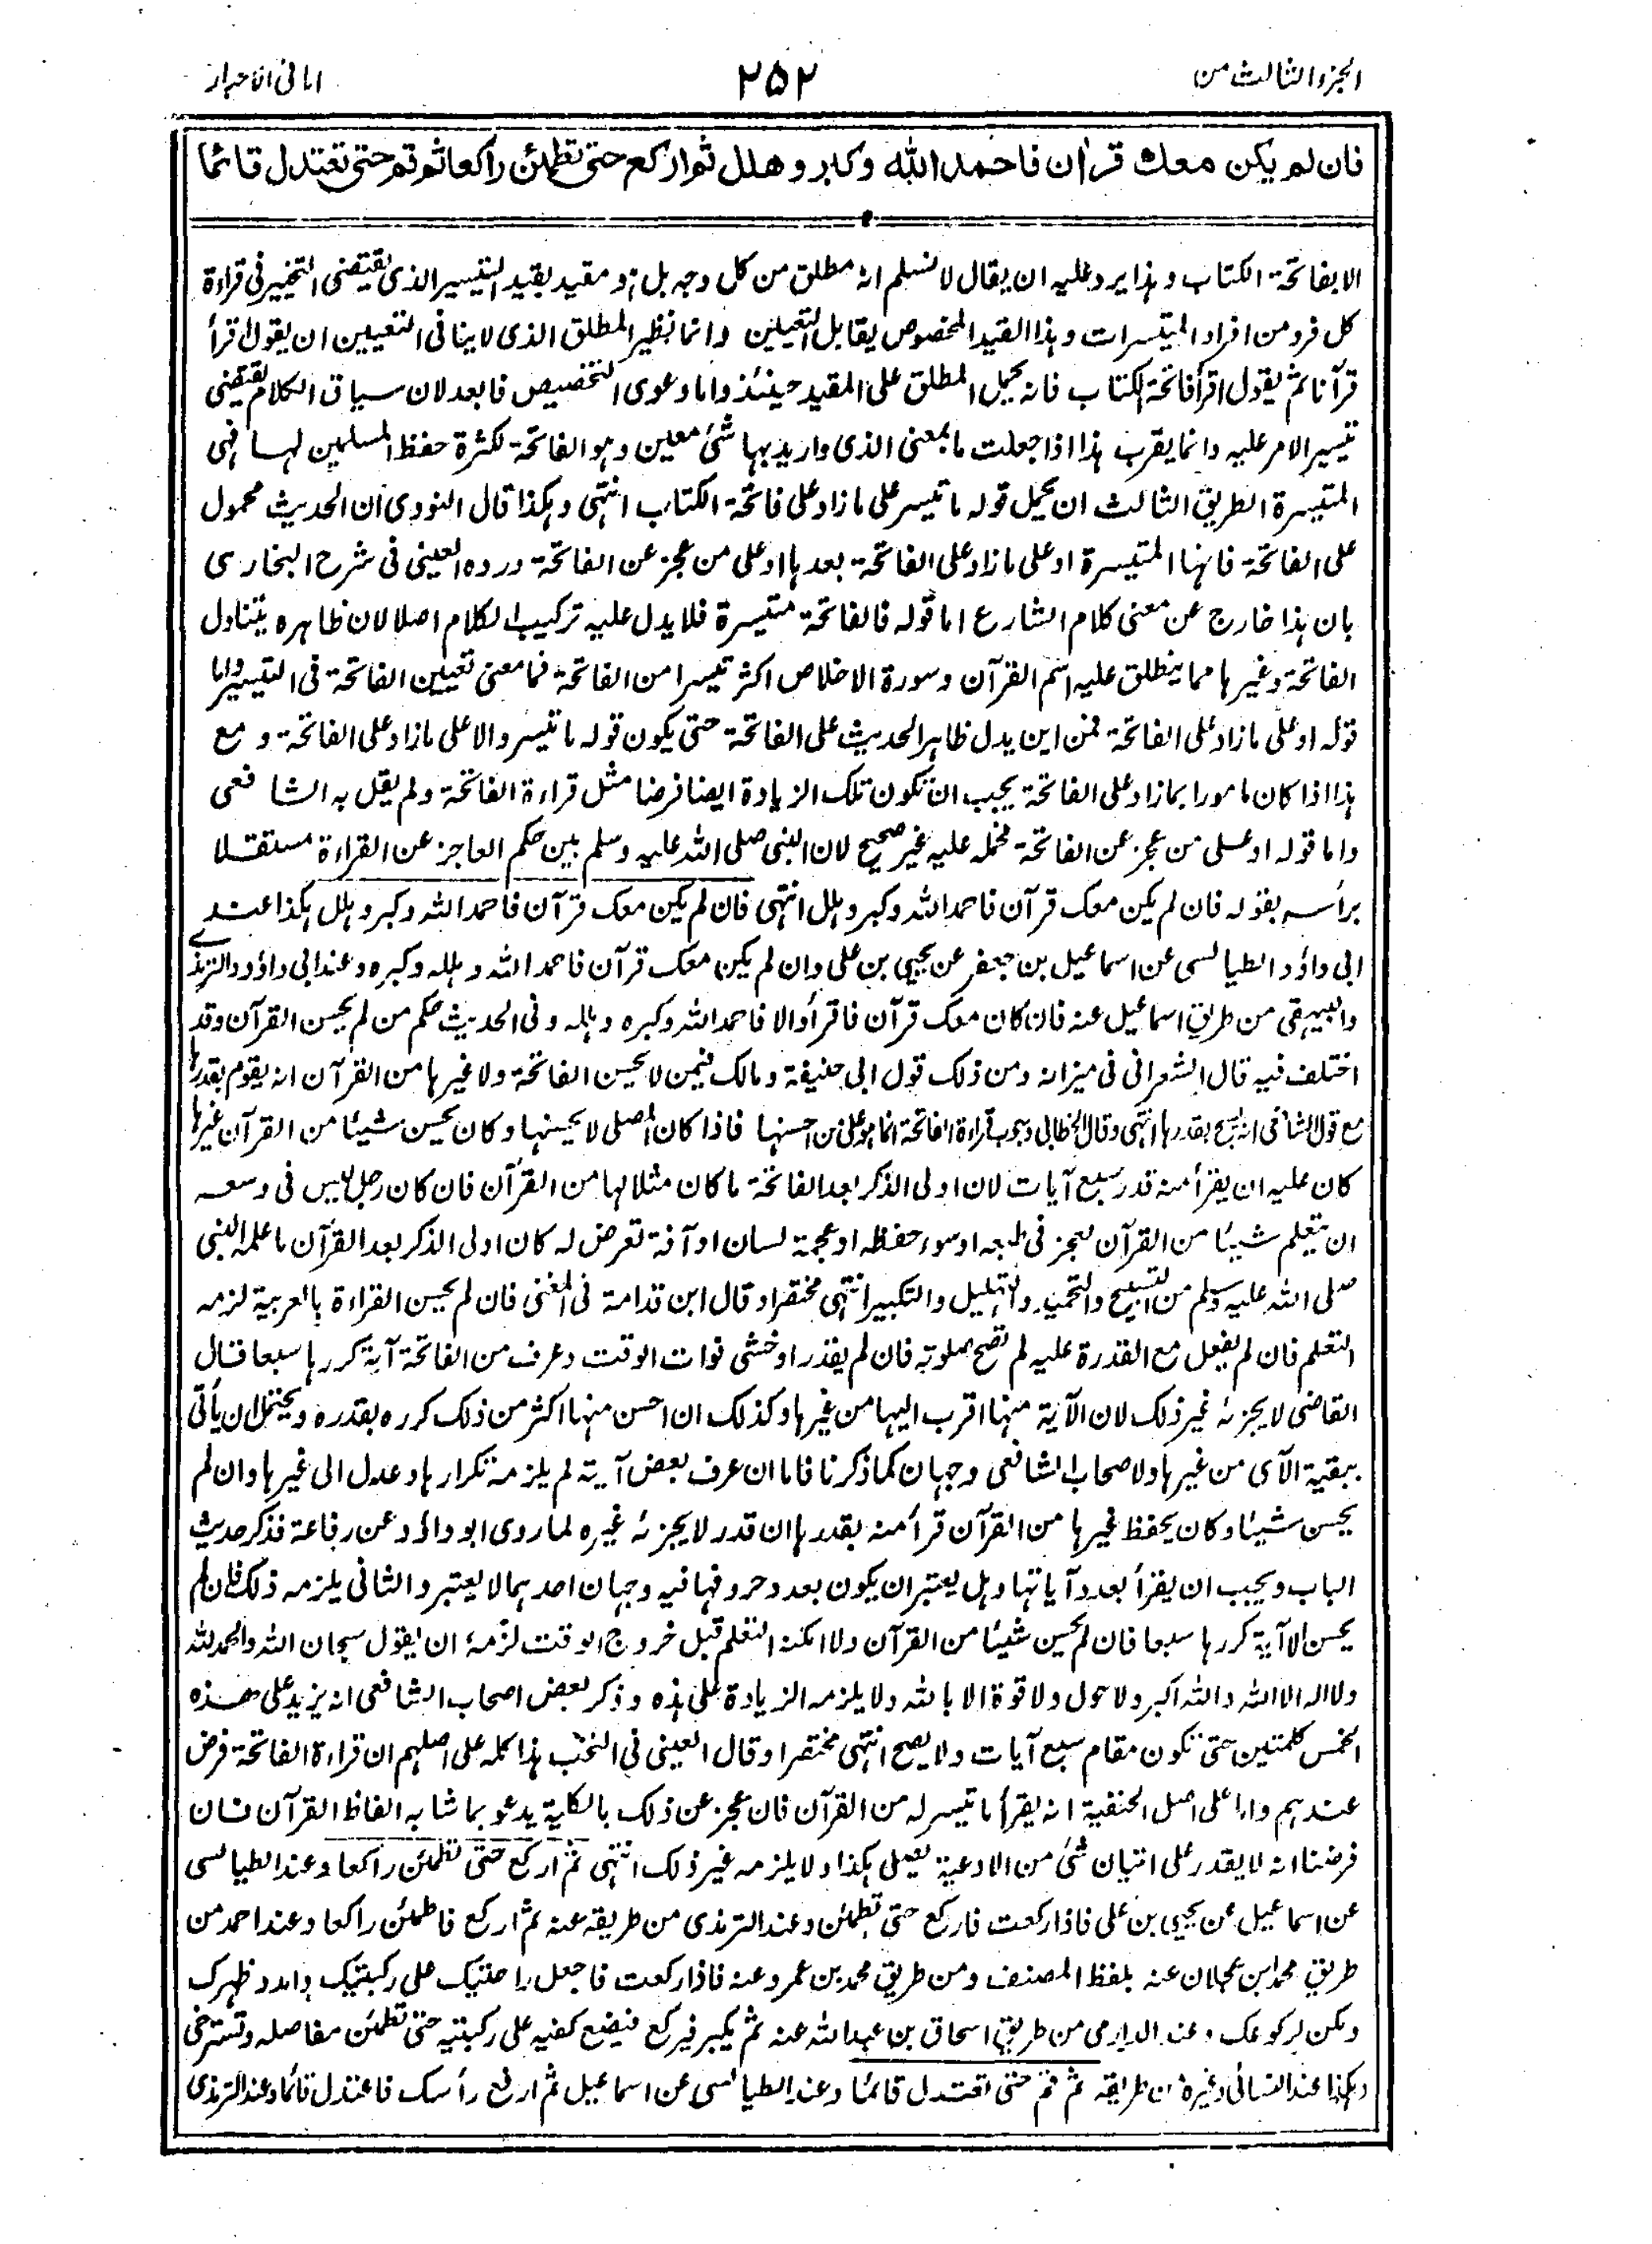 الجزء الثالث من
٢٥٢
امانی الاحبار
فان لم يكن معك قراٰن فاحمد الله وكبر وهلل ثم اركع حتى تطمئن راكعا ثم قم حتى تعتدل قائما
الا بفاتحة الكتاب وہذا يرد عليه ان يقال لا نسلم انه مطلق من كل وجہ بل ہو مقيد بقيد التيسير الذى يقتضى التخيير فى قراءة
كل فرد من افراد المتيسرات وہذا القيد المخصوص يقابل التعيين وانما نظير المطلق الذى لا ينافى التعيين ان يقول اقرأ
قرآنا ثم يقول اقرأ فاتحة الكتاب فانہ يحمل المطلق على المقيد حينئذ واما دعوى التخصيص فابعد لان سياق الكلام يقتضى
تيسير الامر عليه وانما يقرب ہذا اذا جعلت ما بمعنى الذى واريد بہا شئ معين وہو الفاتحة لكثرة حفظ المسلمين لہا فہى
المتيسرة الطريق الثالث ان يحمل قولہ ما تيسر على ما زاد على فاتحة الكتاب انتہى وہكذا قال النووى ان الحديث محمول
على الفاتحة فانہا المتيسرة او على ما زاد على الفاتحة بعدہا او على من عجز عن الفاتحة وردہ العينى فى شرح البخارى
بان ہذا خارج عن معنى كلام الشارع اما قولہ فالفاتحة متيسرة فلا يدل عليہ تركيب الكلام اصلا لان ظاہرہ يتناول
الفاتحة وغيرہا مما ينطلق عليہ اسم القرآن وسورة الاخلاص اكثر تيسرا من الفاتحة فما معنى تعيين الفاتحة فى التيسير واما
قولہ او على ما زاد على الفاتحة فمن اين يدل ظاہر الحديث على الفاتحة حتى يكون قولہ ما تيسر والا على ما زاد على الفاتحة ومع
ہذا اذا كان مامورا بما زاد على الفاتحة يجب ان تكون تلك الزيادة ايضا فرضا مثل قراءة الفاتحة ولم يقل بہ الشافعى
واما قولہ او على من عجز عن الفاتحة فحملہ عليہ غير صحيح لان النبى صلى اللہ عليہ وسلم بين حكم العاجز عن القراءة مستقلا
برأسہ بقولہ فان لم يكن معك قرآن فاحمد اللہ وكبر وہلل انتہى فان لم يكن معك قرآن فاحمد اللہ وكبر وہلل ہكذا عند
ابى داؤد الطيالسى عن اسماعيل بن جعفر عن يحيى بن على وان لم يكن معك قرآن فاحمد اللہ وہللہ وكبرہ وعند ابى داؤد والترمذے
والبيہقى من طريق اسماعيل عنہ فان كان معك قرآن فاقرأ والا فاحمد اللہ وكبرہ وہللہ وفى الحديث حكم من لم يحسن القرآن وقد
اختلف فيہ قال الشعرانى فى ميزانہ ومن ذلك قول ابى حنيفة ومالك فيمن لا يحسن الفاتحة ولا غيرہا من القرآن انہ يقوم بقدرہا
مع قول الشافعى انہ يسبح بقدرہا انتہى وقال الخطابى وجوب قراءة الفاتحة انما ہو على من احسنہا فاذا كان المصلى لا يحسنہا وكان يحسن شيئا من القرآن غيرہا
كان عليہ ان يقرأ منہ قدر سبع آيات لان اولى الذكر بعد الفاتحة ما كان مثلا لہا من القرآن فان كان رجل ليس فى وسعہ
ان يتعلم شيئا من القرآن لعجز فى طبعہ او سوء حفظہ او عجمة لسان او آفة تعرض لہ كان اولى الذكر بعد القرآن ما علمہ النبى
صلى اللہ عليہ وسلم من التسبيح والتحميد والتہليل والتكبير انتہى مختصرا وقال ابن قدامة فى المغنى فان لم يحسن القراءة بالعربية لزمہ
التعلم فان لم يفعل مع القدرة عليہ لم تصح صلوتہ فان لم يقدر او خشى فوات الوقت وعرف من الفاتحة آية كررہا سبعا قال
القاضى لا يجزئہ غير ذلك لان الآية منہا اقرب اليہا من غيرہا وكذلك ان احسن منہا اكثر من ذلك كررہ بقدرہ ويحتمل ان يأتى
ببقية الآى من غيرہا ولاصحاب الشافعى وجہان كما ذكرنا فاما ان عرف بعض آية لم يلزمہ تكرارہا وعدل الى غيرہا وان لم
يحسن شيئا وكان يحفظ غيرہا من القرآن قرأ منہ بقدرہا ان قدر لا يجزئہ غيرہ لما روى ابو داؤد عن رفاعة فذكر حديث
الباب ويجب ان يقرأ بعدد آياتہا وہل يعتبر ان يكون بعدد حروفہا فيہ وجہان احدہما لا يعتبر والثانى يلزمہ ذلك فان لم
يحسن الا آية كررہا سبعا فان لم يحسن شيئا من القرآن ولا امكنہ التعلم قبل خروج الوقت لزمہ ان يقول سبحان اللہ والحمد للہ
ولا الہ الا اللہ واللہ اكبر ولا حول ولا قوة الا باللہ ولا يلزمہ الزيادة على ہذہ وذكر بعض اصحاب الشافعى انہ يزيد على ہذہ
الخمس كلمتين حتى تكون مقام سبع آيات ولا يصح انتہى مختصرا وقال العينى فى النخب ہذا كلہ على اصلہم ان قراءة الفاتحة فرض
عندہم واما على اصل الحنفية انہ يقرأ ما تيسر لہ من القرآن فان عجز عن ذلك بالكلية يدعو بما شابہ الفاظ القرآن فان
فرضنا انہ لا يقدر على اتيان شئ من الادعية يصلى ہكذا ولا يلزمہ غير ذلك انتہى ثم اركع حتى تطمئن راكعا وعند الطيالسى
عن اسماعيل عن يحيى بن على فاذا ركعت فاركع حتى تطمئن وعند الترمذى من طريقہ عنہ ثم اركع فاطمئن راكعا وعند احمد من
طريق محمد ابن عجلان عنہ بلفظ المصنف ومن طريق محمد بن عمرو عنہ فاذا ركعت فاجعل راحتيك على ركبتيك وامدد ظہرك
ومكن لركوعك وعند الدارمى من طريق اسحاق بن عبد اللہ عنہ ثم يكبر فيركع فيضع كفيہ على ركبتيہ حتى تطمئن مفاصلہ وتسترخى
وہكذا عند النسائى وغيرہ من طريقہ ثم قم حتى تعتدل قائما وعند الطيالسى عن اسماعيل ثم ارفع رأسك فاعتدل قائما وعند الترمذى